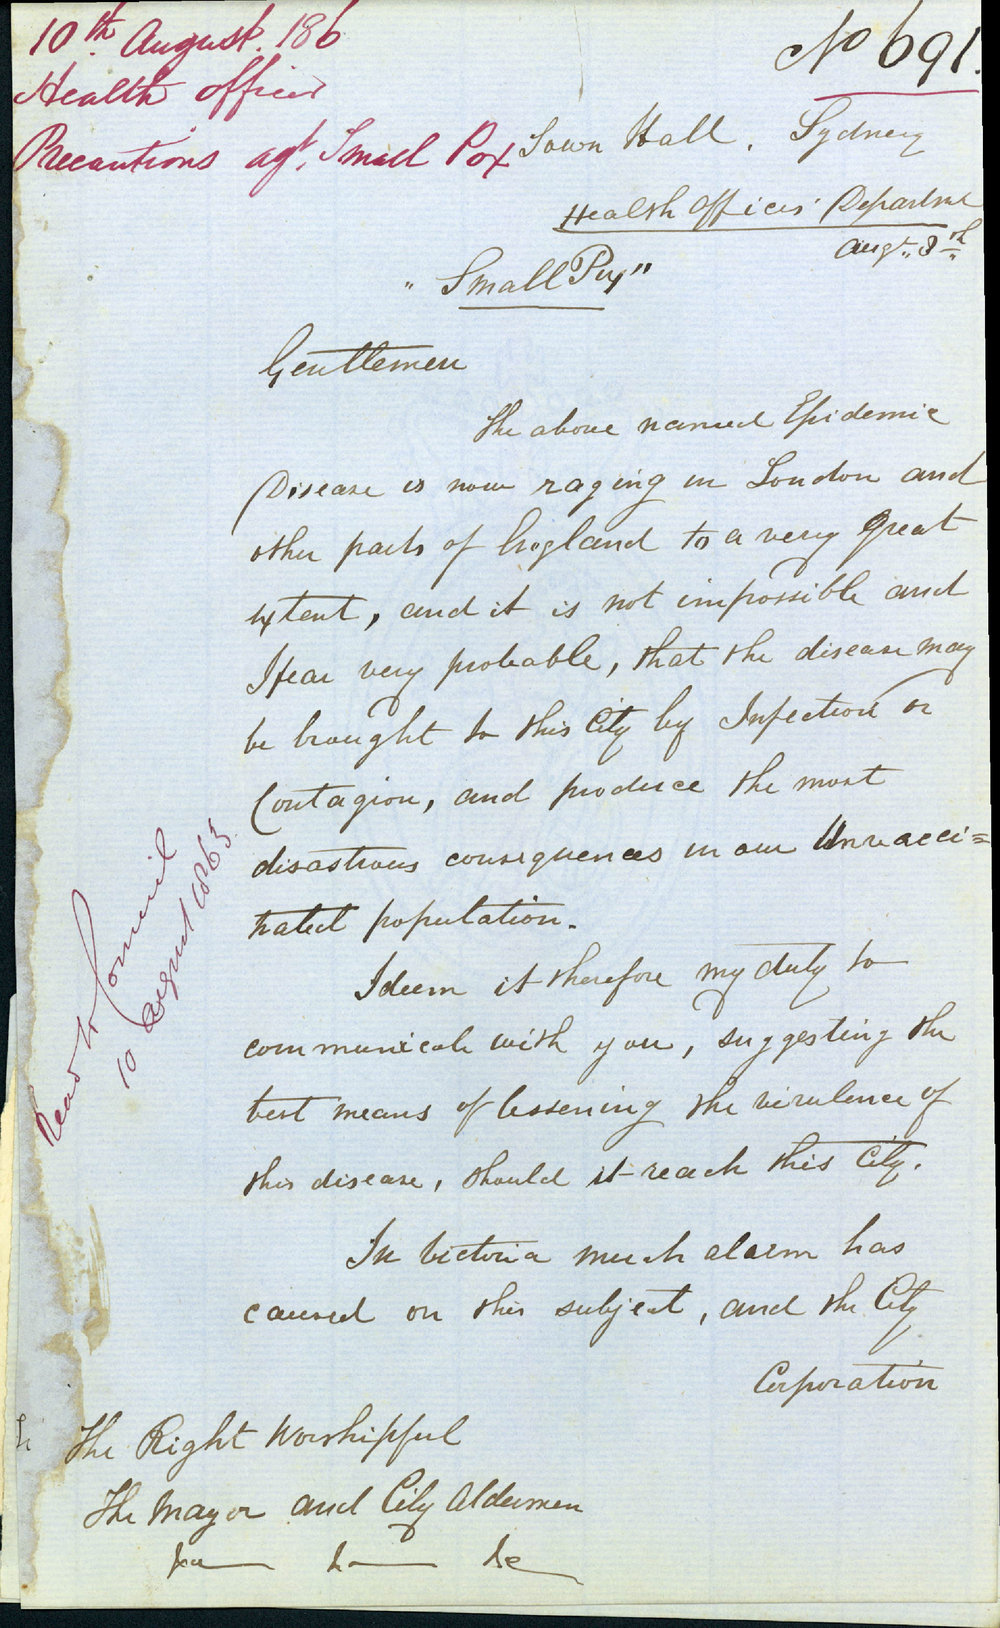 10th August. 186
No 691.
Health officer
Precautions agt. Small Pox
Town Hall, Sydney
Health Officers' Departme
Augt. 8th
"Small Pox"
Gentlemen
The above named Epidemic
Disease is now raging in London and
other parts of England to a very Great
extent, and it is not impossible and
I fear very probable, that the disease may
be brought to this City by Infection or
Contagion, and produce the most
disastrous consequences in our Unvacci=
nated population.
I deem it therefore my duty to
communicate with you, suggesting the
best means of lessening the virulence of
this disease, should it reach this City.
In Victoria much alarm has
caused on this subject, and the City
Corporation
The Right Worshipful
The Mayor and City Aldermen
Read to Council
10 August 1863